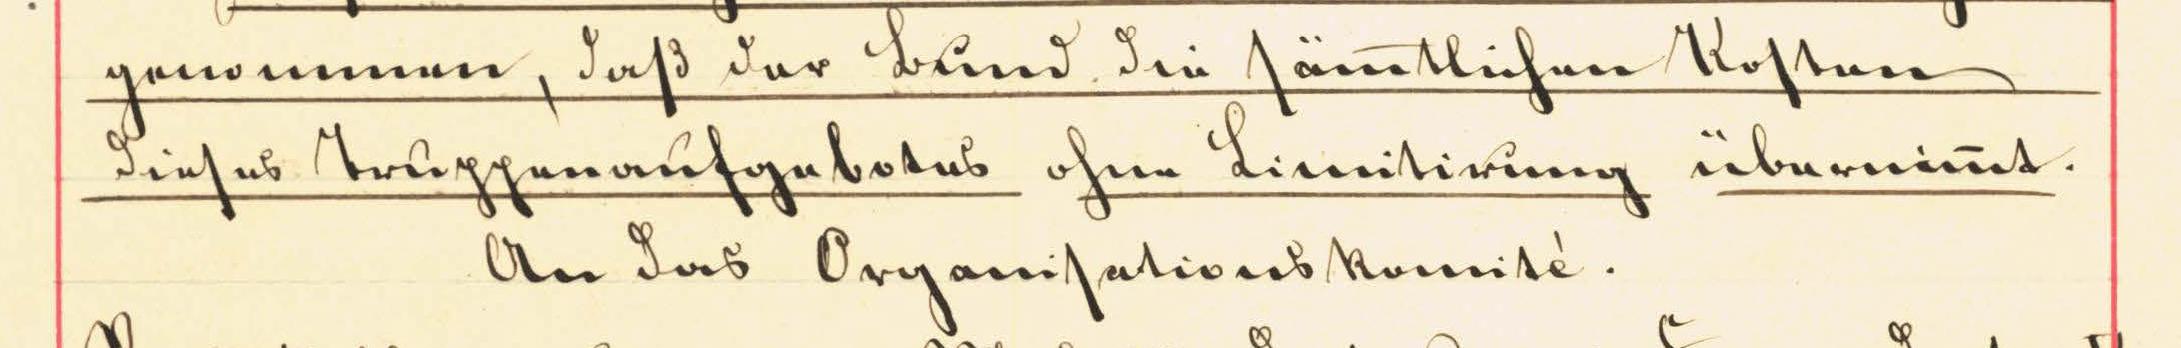 genommen, daß der Bund die säm̅tlichen Kosten
dieses Truppenaufgebotes ohne Limitirung übernim̅t.
An das Organisationskomité.